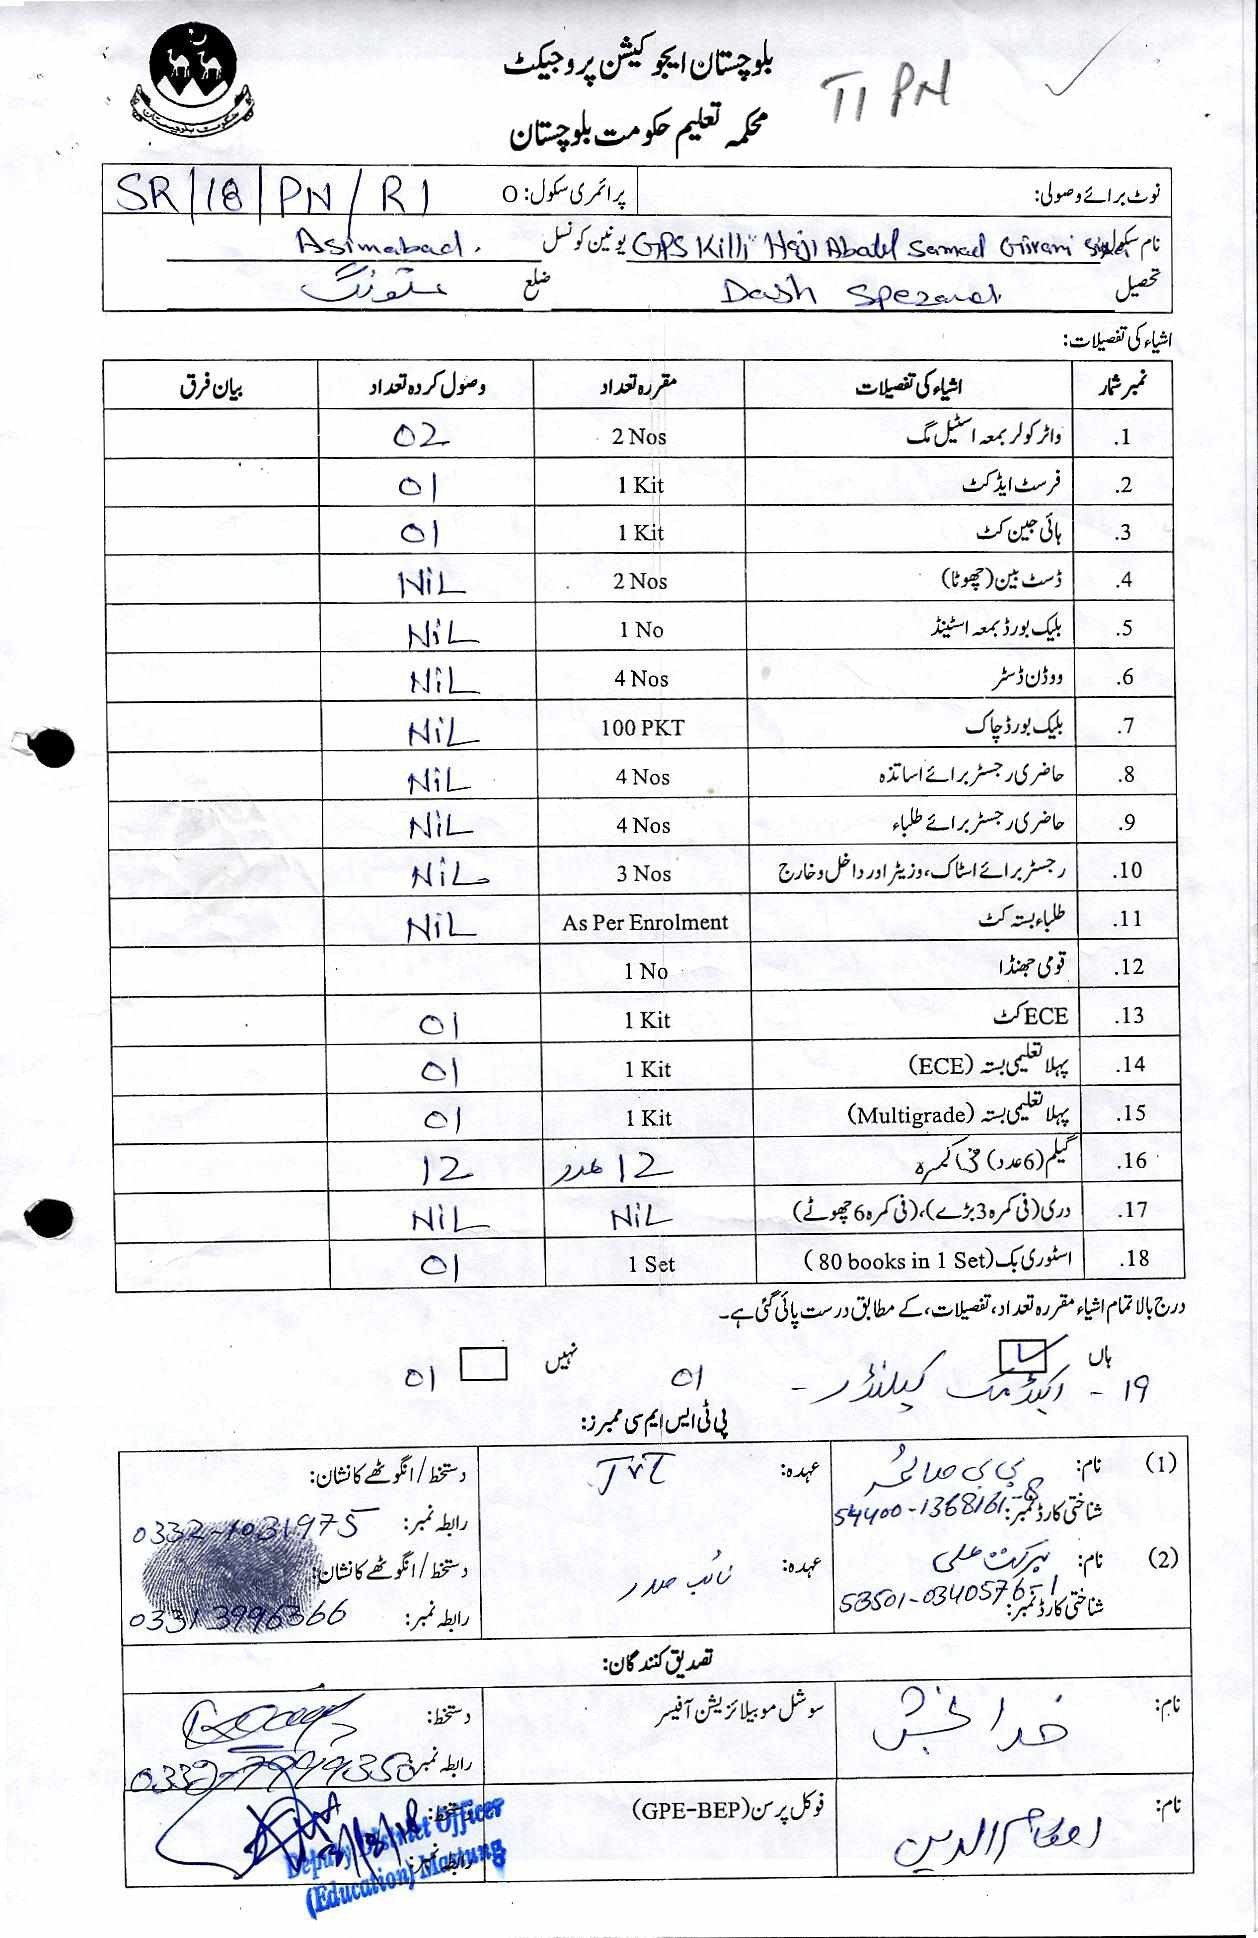 بلوچستان ایجوکیشن پروجیکٹ
T1 PN
محکمہ تعلیم حکومت بلوچستان
حکومت بلوچستان
نوٹ برائے وصولی: پرائمری سکول: O SR/18/PN/R1
نام سکول GPS Killi Haji Abdul Samad Girani یونین کونسل Asimabad.
تحصیل Dash Spezand. ضلع مستونگ
اشیاء کی تفصیلات:
نمبر شمار اشیاء کی تفصیلات مقررہ تعداد وصول کردہ تعداد بیان فرق
1. واٹر کولر بمعہ اسٹیل مگ 2 Nos 02
2. فرسٹ ایڈ کٹ 1 Kit 01
3. ہائی جین کٹ 1 Kit 01
4. ڈسٹ بین (چھوٹا) 2 Nos NiL
5. بلیک بورڈ بمعہ اسٹینڈ 1 No NiL
6. ووڈن ڈسٹر 4 Nos NiL
7. بلیک بورڈ چاک 100 PKT NiL
8. حاضری رجسٹر برائے اساتذہ 4 Nos NiL
9. حاضری رجسٹر برائے طلباء 4 Nos NiL
10. رجسٹر برائے اسٹاک، وزیٹر اور داخل و خارج 3 Nos NiL
11. طلباء بستہ کٹ As Per Enrolment NiL
12. قومی جھنڈا 1 No
13. ECE کٹ 1 Kit 01
14. پہلا تعلیمی بستہ (ECE) 1 Kit 01
15. پہلا تعلیمی بستہ (Multigrade) 1 Kit 01
16. گیلم (6 عدد) فی کمرہ 12 عدد 12
17. دری (فی کمرہ 3 بڑے)، (فی کمرہ 6 چھوٹے) NiL NiL
18. اسٹوری بک (80 books in 1 Set) 1 Set 01
درج بالا تمام اشیاء مقررہ تعداد، تفصیلات، کے مطابق درست پائی گئی ہے۔
ہاں نہیں
19 - اکیڈمک کیلنڈر - 01 01
پی ٹی ایس ایم سی ممبرز:
(1) نام: بی بی صائمہ عہدہ: JVT دستخط/انگوٹھے کا نشان:
شناختی کارڈ نمبر: 54400-1368161-8 رابطہ نمبر: 0332-1031975
(2) نام: برکت علی عہدہ: نائب صدر دستخط/انگوٹھے کا نشان:
شناختی کارڈ نمبر: 53501-0340576-1 رابطہ نمبر: 0331 3996366
تصدیق کنندگان:
نام: خدا بخش سوشل موبیلائزیشن آفیسر دستخط:
رابطہ نمبر: 0332-7949350
نام: فوکل پرسن (GPE-BEP) دستخط:
رابطہ نمبر:
Deputy District Officer
(Education) Mastung